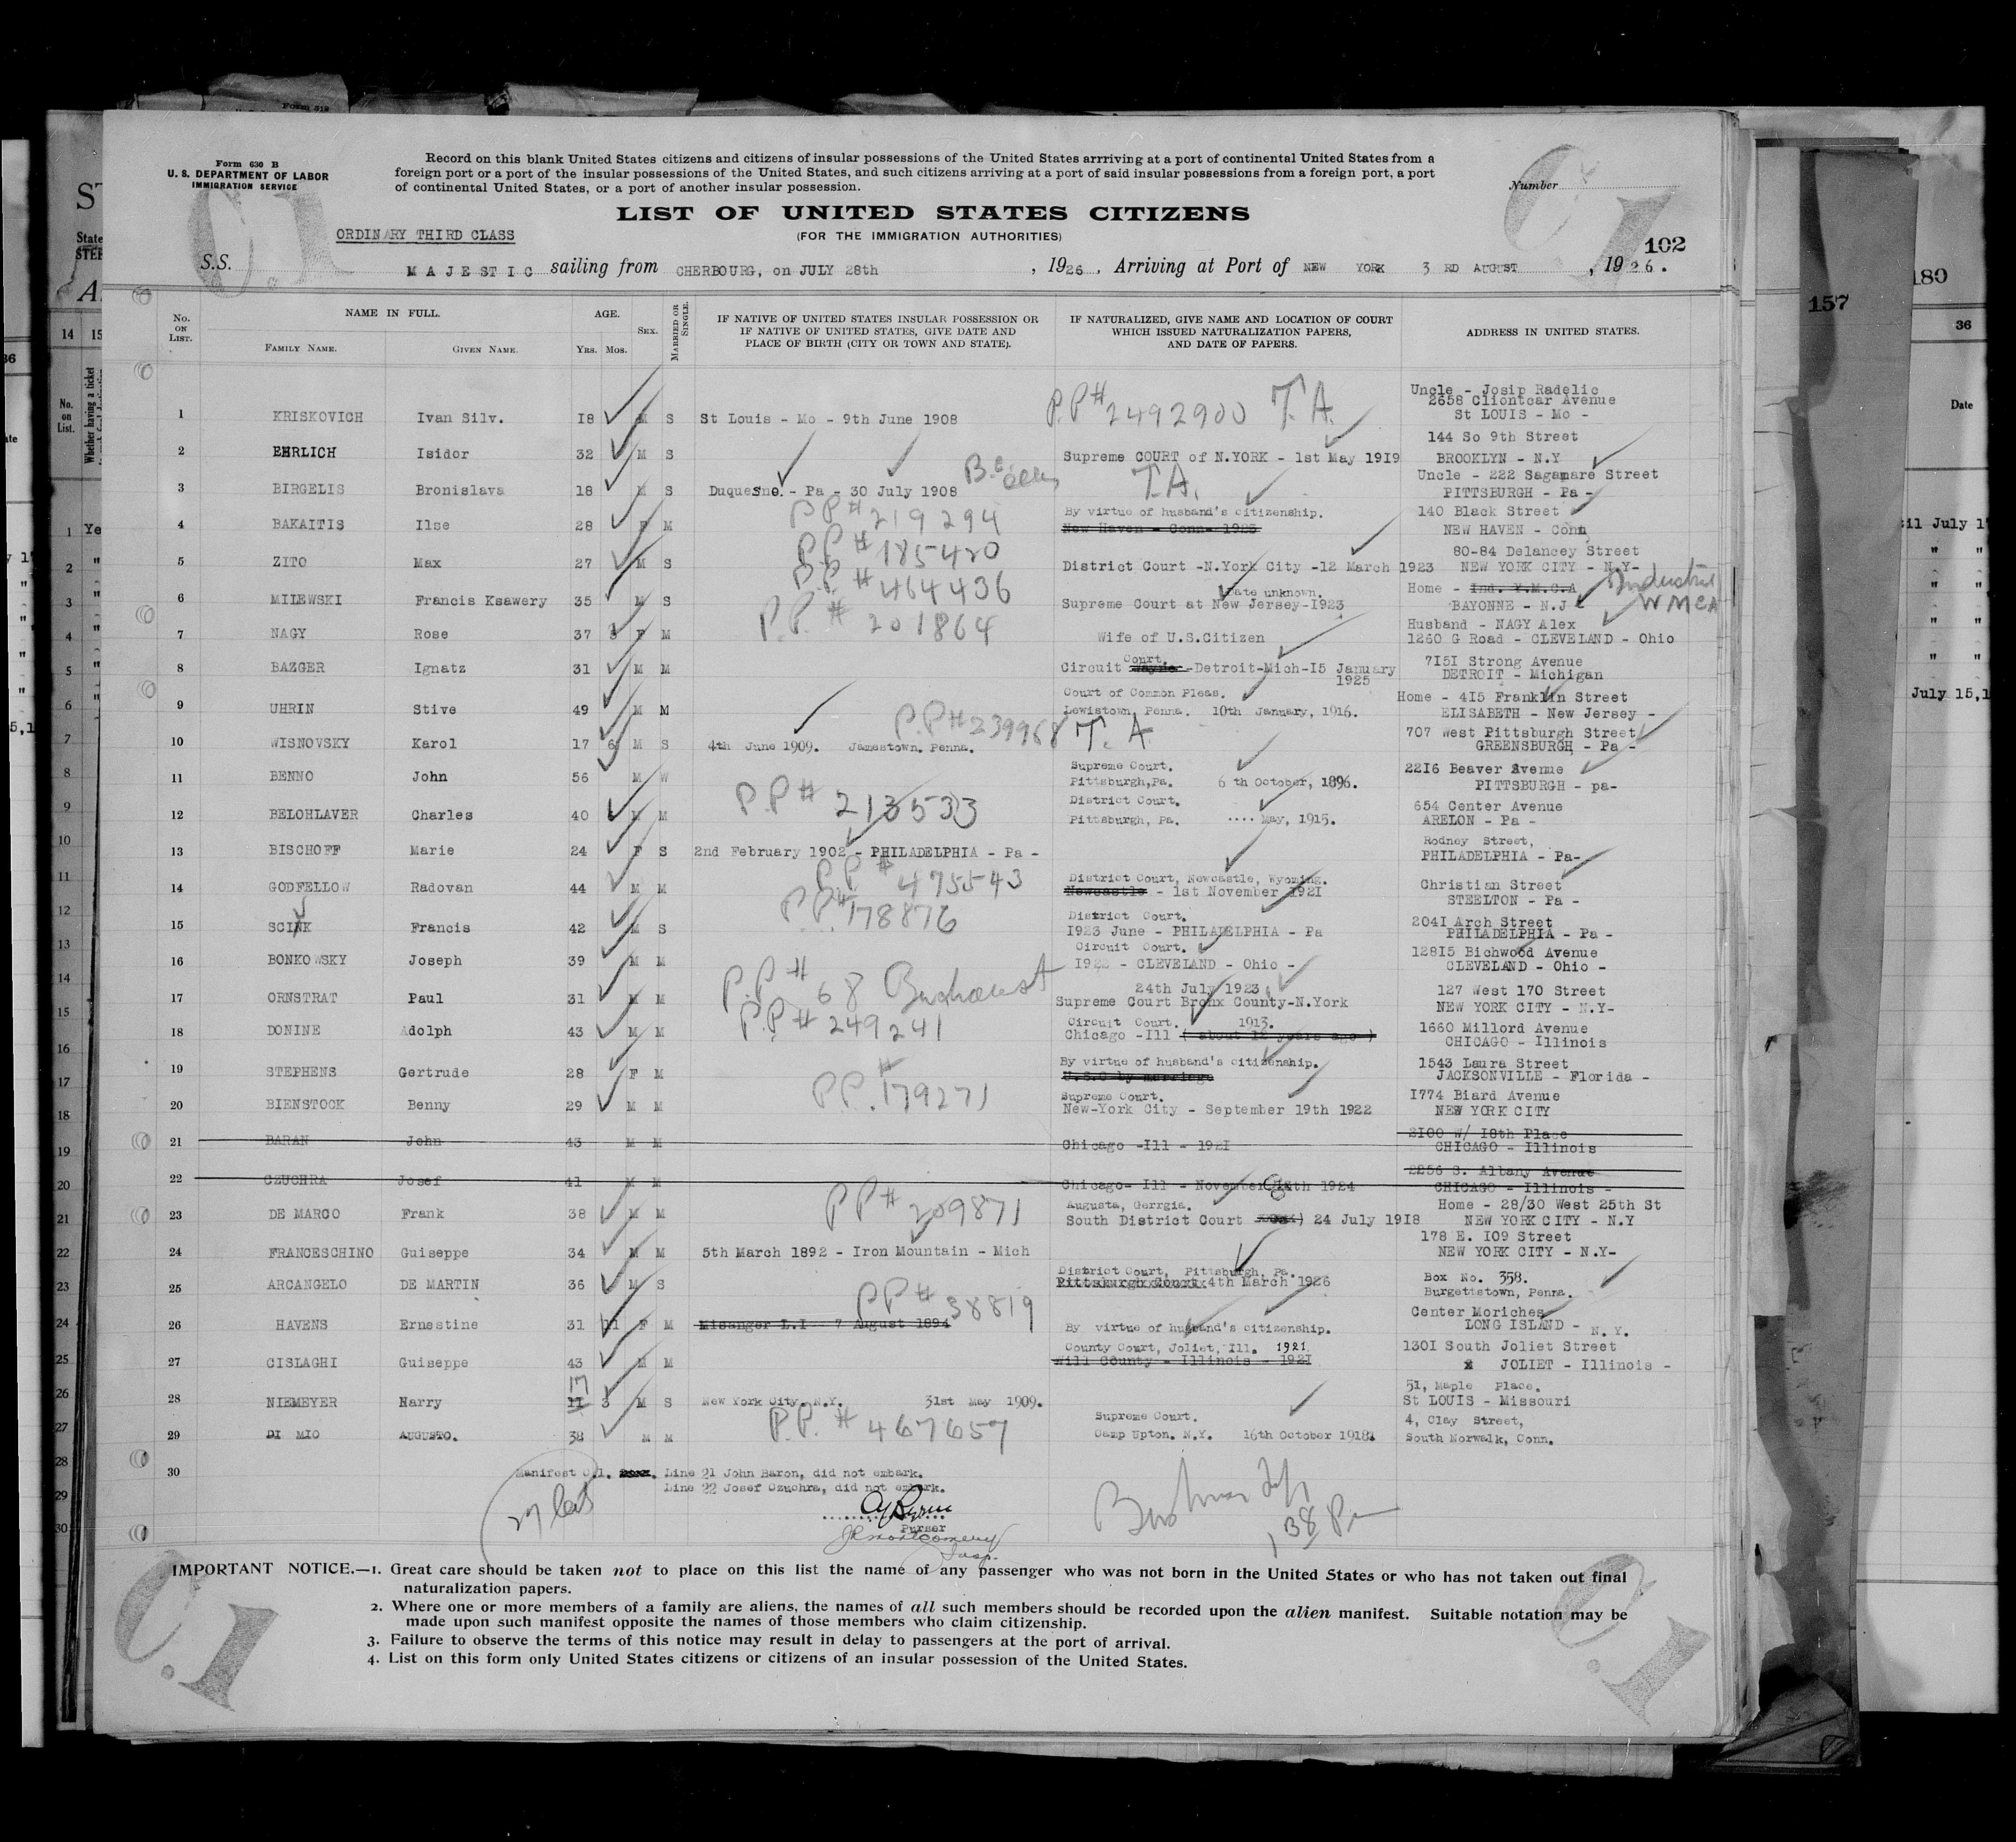 Form 630 B
U. S. DEPARTMENT OF LABOR
IMMIGRATION SERVICE
Record on this blank United States citizens and citizens of insular possessions of the United States arrriving at a port of continental United States from a
foreign port or a port of the insular possessions of the United States, and such citizens arriving at a port of said insular possessions from a foreign port, a port
of continental United States, or a port of another insular possession.
Number
LIST OF UNITED STATES CITIZENS
(FOR THE IMMIGRATION AUTHORITIES)
ORDINARY THIRD CLASS
102
S.S. MAJESTIC sailing from CHERBOURG, on JULY 28th, 1926, Arriving at Port of NEW YORK 3 RD AUGUST, 1926.
No. ON LIST. NAME IN FULL. AGE. SEX. MARRIED OR SINGLE. IF NATIVE OF UNITED STATES INSULAR POSSESSION OR IF NATIVE OF UNITED STATES, GIVE DATE AND PLACE OF BIRTH (CITY OR TOWN AND STATE). IF NATURALIZED, GIVE NAME AND LOCATION OF COURT WHICH ISSUED NATURALIZATION PAPERS, AND DATE OF PAPERS. ADDRESS IN UNITED STATES.
FAMILY NAME. GIVEN NAME. YRS. MOS.
Uncle - Josip Radelic
2658 Cliontcar Avenue
1 KRISKOVICH Ivan Silv. I8 M S St Louis - Mo - 9th June 1908 P.P# 2492900 T.A. St LOUIS - Mo -
144 So 9th Street
2 EHRLICH Isidor 32 M S Supreme COURT of N.YORK - 1st May 1919 BROOKLYN - N.Y
Uncle - 222 Sagamare Street
3 BIRGELIS Bronislava 18 M S Duquesne - Pa - 30 July 1908 T.A. PITTSBURGH - Pa -
By virtue of husband's citizenship. 140 Black Street
4 BAKAITIS Ilse 28 F M PP# 219294 New Haven - Conn- 1923 NEW HAVEN - Conn
80-84 Delancey Street
5 ZITO Max 27 M S P.P.# 185420 District Court -N.York City -12 March 1923 NEW YORK CITY - N.Y-
Date unknown. Home - Ind. Y.M.C.A
6 MILEWSKI Francis Ksawery 35 M S P.P. # 464436 Supreme Court at New Jersey-1923 BAYONNE - N.J
Husband - NAGY Alex
7 NAGY Rose 37 3 F M P.P. # 201864 Wife of U.S.Citizen 1260 G Road - CLEVELAND - Ohio
Court. 7I5I Strong Avenue
8 BAZGER Ignatz 31 M M Circuit Wayne -Detroit-Mich-I5 January 1925 DETROIT - Michigan
Court of Common Pleas. Home - 4I5 Franklin Street
9 UHRIN Stive 49 M M Lewistown, Penna. 10th January, 1916. ELISABETH - New Jersey -
P.P#239968 T.A. 707 West Pittsburgh Street
10 WISNOVSKY Karol 17 6 M S 4th June 1909. Jamestown. Penna. GREENSBURGH - Pa -
Supreme Court. 22I6 Beaver Avenue
11 BENNO John 56 M W Pittsburgh,Pa. 6 th October, 1896. PITTSBURGH - pa-
P.P# 213533 District Court. 654 Center Avenue
12 BELOHLAVER Charles 40 M M Pittsburgh, Pa. .... May, 1915. ARELON - Pa -
Rodney Street,
13 BISCHOFF Marie 24 F S 2nd February 1902 - PHILADELPHIA - Pa - PHILADELPHIA - Pa-
P.P # 475543 District Court, Newcastle, Wyoming. Christian Street
14 GODFELLOW Radovan 44 M M Newcastle - 1st November 1921 STEELTON - Pa -
P.P# 178876 District Court. 204I Arch Street
15 SCINK Francis 42 M S I923 June - PHILADELPHIA - Pa PHILADELPHIA - Pa -
Circuit Court. I28I5 Bichwood Avenue
16 BONKOWSKY Joseph 39 M M I922 - CLEVELAND - Ohio - CLEVELAND - Ohio -
P.P # 68 Bucharest 24th July 1923, 127 West 170 Street
17 ORNSTRAT Paul 31 M M Supreme Court Bronx County-N.York NEW YORK CITY - N.Y-
P.P # 249241 Circuit Court. 1913. 1660 Millord Avenue
18 DONINE Adolph 43 M M Chicago -Ill ( about 12 years ago ) CHICAGO - Illinois
By virtue of husband's citizenship. 1543 Laura Street
19 STEPHENS Gertrude 28 F M U.S.C by marriage JACKSONVILLE - Florida -
P.P.# 179271 Supreme Court. I774 Biard Avenue
20 BIENSTOCK Benny 29 M M New-York City - September 19th 1922 NEW YORK CITY
2I00 W/ I8th Place
21 BARAN John 43 M M Chicago -Ill - 192I CHICAGO - Illinois
2256 S. Albany Avenue
22 CZUCHRA Josef 41 M M Chicago- Ill - November 24th 1924 CHICAGO - Illinois -
PP# 209871 Augusta, Gerrgia. Home - 28/30 West 25th St
23 DE MARCO Frank 38 M M South District Court 24 July 19I8 NEW YORK CITY - N.Y
178 E. I09 Street
24 FRANCESCHINO Guiseppe 34 M M 5th March 1892 - Iron Mountain - Mich NEW YORK CITY - N.Y-
District Court, Pittsburgh, Pa. Box No. 358.
25 ARCANGELO DE MARTIN 36 M S Pittsburgh Court 4th March 1926 Burgettstown, Penna.
PP# 38819 Center Moriches
26 HAVENS Ernestine 31 11 F M Misanger L.I - 7 August 1894 By virtue of husband's citizenship. LONG ISLAND - N. Y.
County Court, Joliet, Ill. 1921 130I South Joliet Street
27 CISLAGHI Guiseppe 43 M M Will County - Illinois - 192I JOLIET - Illinois -
17 51, Maple Place.
28 NIEMEYER Harry 11 3 M S New York City. N.Y. 31st May 1909. St LOUIS - Missouri
P.P. # 467657 Supreme Court. 4, Clay Street,
29 DI MIO AUGUSTO. 38 M M Camp Upton. N.Y. 16th October 1918. South Norwalk, Conn.
30 Manifest C.I. Line 21 John Baron, did not embark.
Line 22 Josef Czuchra, did not embark.
Purser
Insp.
IMPORTANT NOTICE.—1. Great care should be taken not to place on this list the name of any passenger who was not born in the United States or who has not taken out final
naturalization papers.
2. Where one or more members of a family are aliens, the names of all such members should be recorded upon the alien manifest. Suitable notation may be
made upon such manifest opposite the names of those members who claim citizenship.
3. Failure to observe the terms of this notice may result in delay to passengers at the port of arrival.
4. List on this form only United States citizens or citizens of an insular possession of the United States.
C.1
157
180